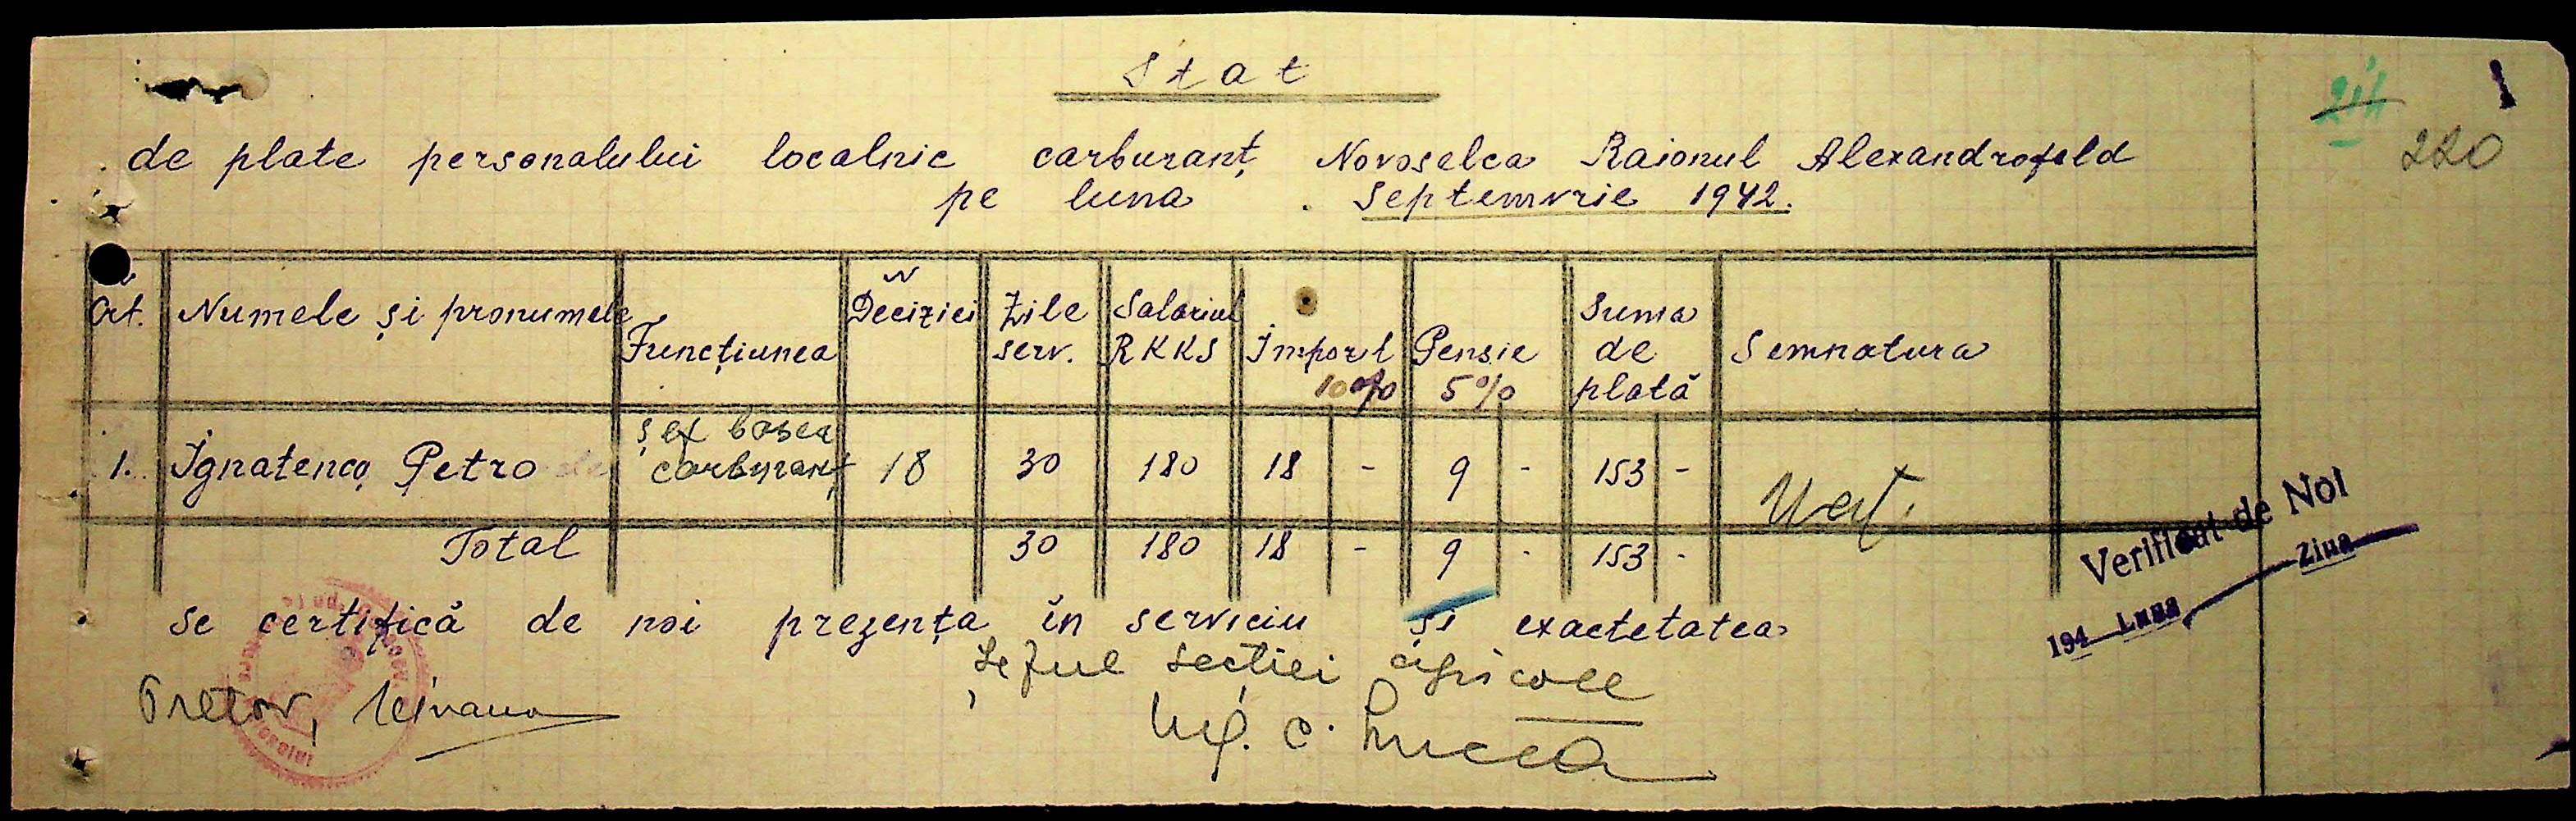 Stat
220
de plate personalului localnic carburanț Novoselca Raionul Alexandrofeld
pe luna Septemvrie 1942.
Crt. Numele și pronumele Funcțiunea N Deciziei Zile serv. Salariul RKKS Import 10% Pensie 5% Suma de plată Semnatura
1. Ignatenco Petro șef basea carburanț 18 30 180 18 - 9 - 153 -
Total 30 180 18 - 9 - 153 -
Verificat de Noi
194 Luna Ziua
se certifică de noi prezența în serviciu și exactetatea
Șeful secției agricole
Pretor,
Ing. C.